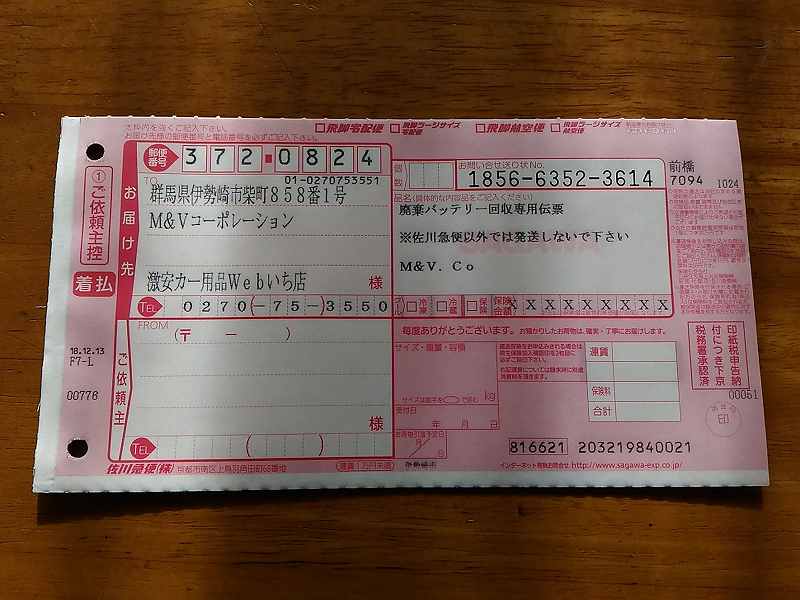 太枠内を強くご記入下さい。
お届け先様の郵便番号と電話番号を必ずご記入下さい。
□飛脚宅配便
□飛脚ラージサイズ宅配便
□飛脚航空便
□飛脚ラージサイズ航空便
①ご依頼主控
着払
18.12.13
F7-L
00776
お届け先
郵便番号
372-0824
TO
01-0270753551
群馬県伊勢崎市柴町858番1号
M&Vコーポレーション
激安カー用品Webいち店
様
TEL
0270(-75-)3550
個数
お問い合せ送り状No.
1856-6352-3614
前橋
7094
1024
品名(具体的な内容品をご記入ください)
廃棄バッテリー回収専用伝票
※佐川急便以外では発送しないで下さい
M&V. Co
□冷凍
□冷蔵
□保険
保険金額
XXXXXXXXX
ご依頼主
FROM
(〒 － )
様
TEL
( )
毎度ありがとうございます。
お預かりしたお荷物は、確実・丁寧にお届けします。
サイズ・重量・容積
kg
受付日
年 月 日
運賃
保険料
合計
印紙税申告納
付につき下京
税務署承認済
00051
印
816621
203219840021
佐川急便(株)
京都市南区上鳥羽角田町68番地
インターネット荷物お問合せ http://www.sagawa-exp.co.jp/